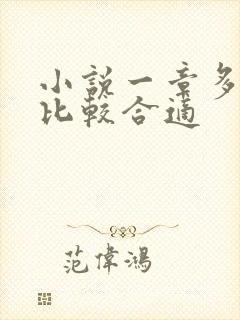 小說一章多
比較合適
范偉鴻